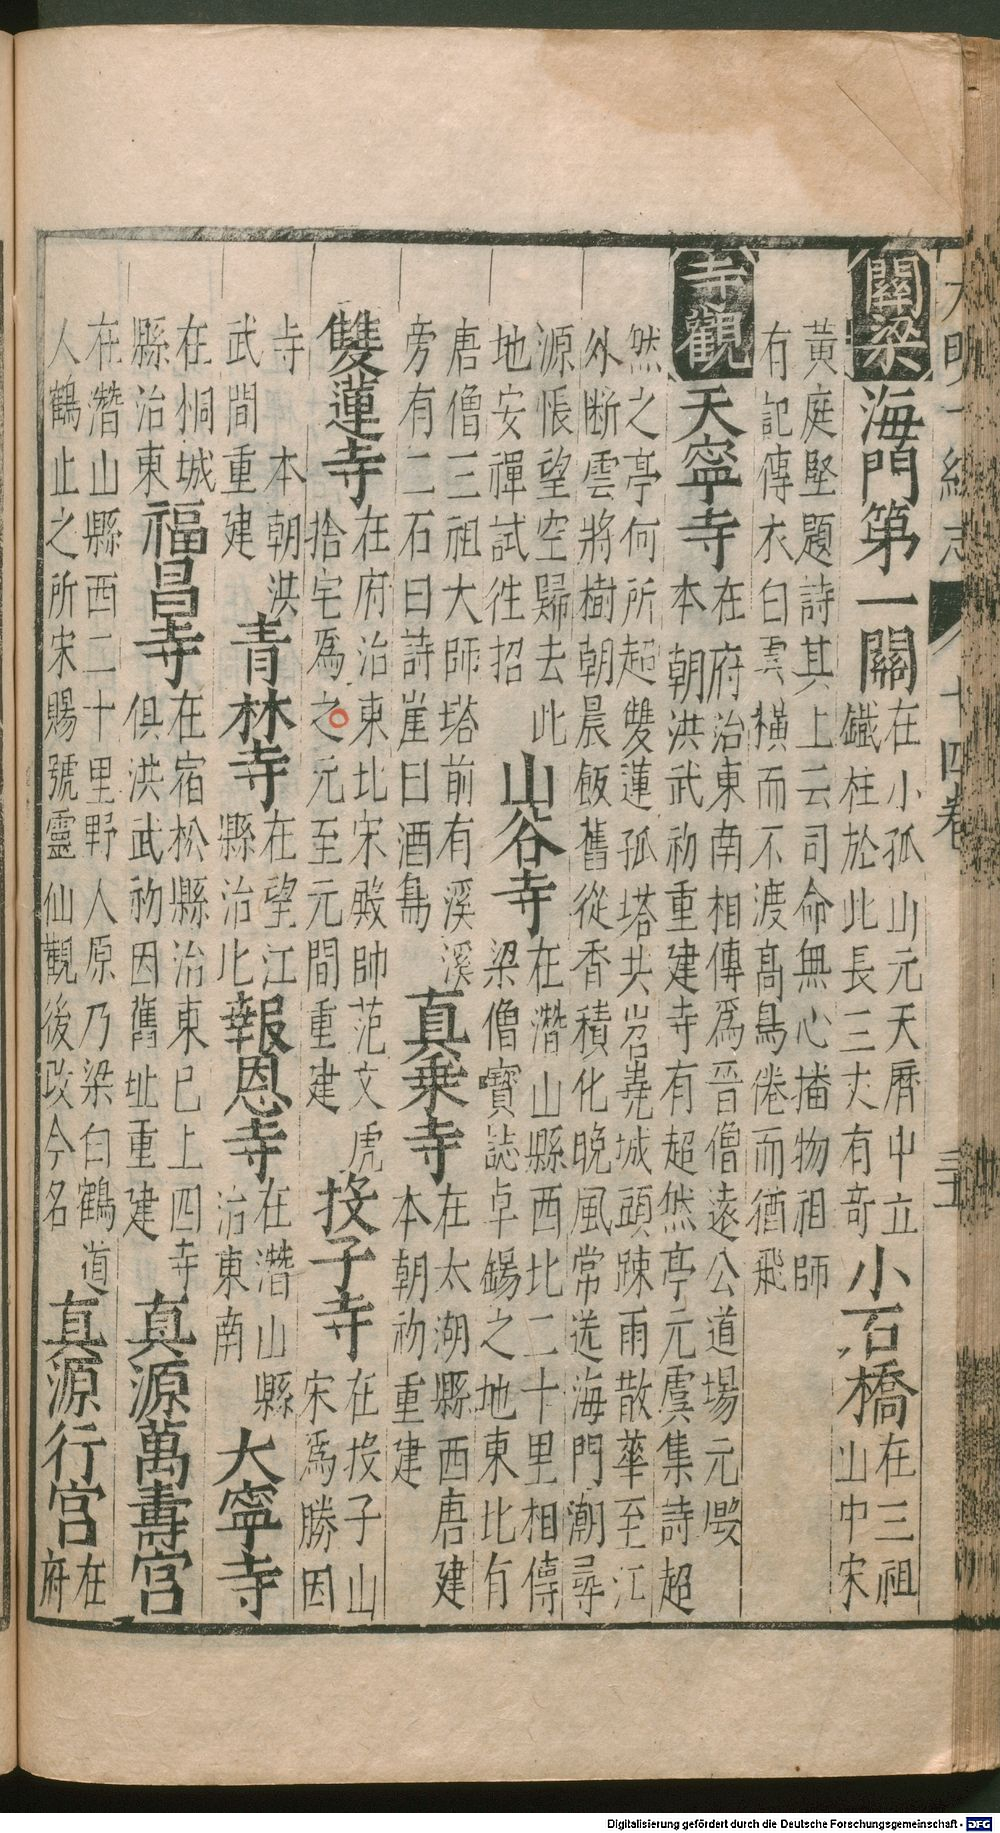 大明一統志 十四卷
關梁 海門第一關 在小孤山元天曆中立
鐵柱於此長三丈有奇 小石橋 在三祖
山中宋
黃庭堅題詩其上云司命無心播物祖師
有記傳衣白雲橫而不渡高鳥倦而猶飛
寺觀 天寧寺 在府治東南相傳爲晉僧遠公道場元
本朝洪武初重建寺有超然亭元虞集詩超
然之亭何所起雙蓮孤塔共岧嶤城頭踈雨散華至江
外断雲將樹朝晨飯舊從香積化晚風常送海門潮尋
源悵望空歸去此
地安禪試徃招 山谷寺 在潛山縣西北二十里相傳
梁僧寶誌卓錫之地東北有
唐僧三祖大師塔前有溪溪
旁有二石曰詩崖曰酒島 真乗寺 在太湖縣西唐建
本朝初重建
雙蓮寺 在府治東北宋殿帥范文虎
捨宅爲之元至元間重建 投子寺 在投子山
宋爲勝因
寺 本朝洪
武間重建 青林寺 在望江
縣治北 報恩寺 在潛山縣
治東南 大寧寺
在桐城
縣治東 福昌寺 在宿松縣治東已上四寺
俱洪武初因舊址重建 真源萬壽宮
在潛山縣西二十里野人原乃梁白鶴道
人鶴止之所宋賜號靈仙觀後改今名 真源行宮 在
府
Digitalisierung gefördert durch die Deutsche Forschungsgemeinschaft - DFG